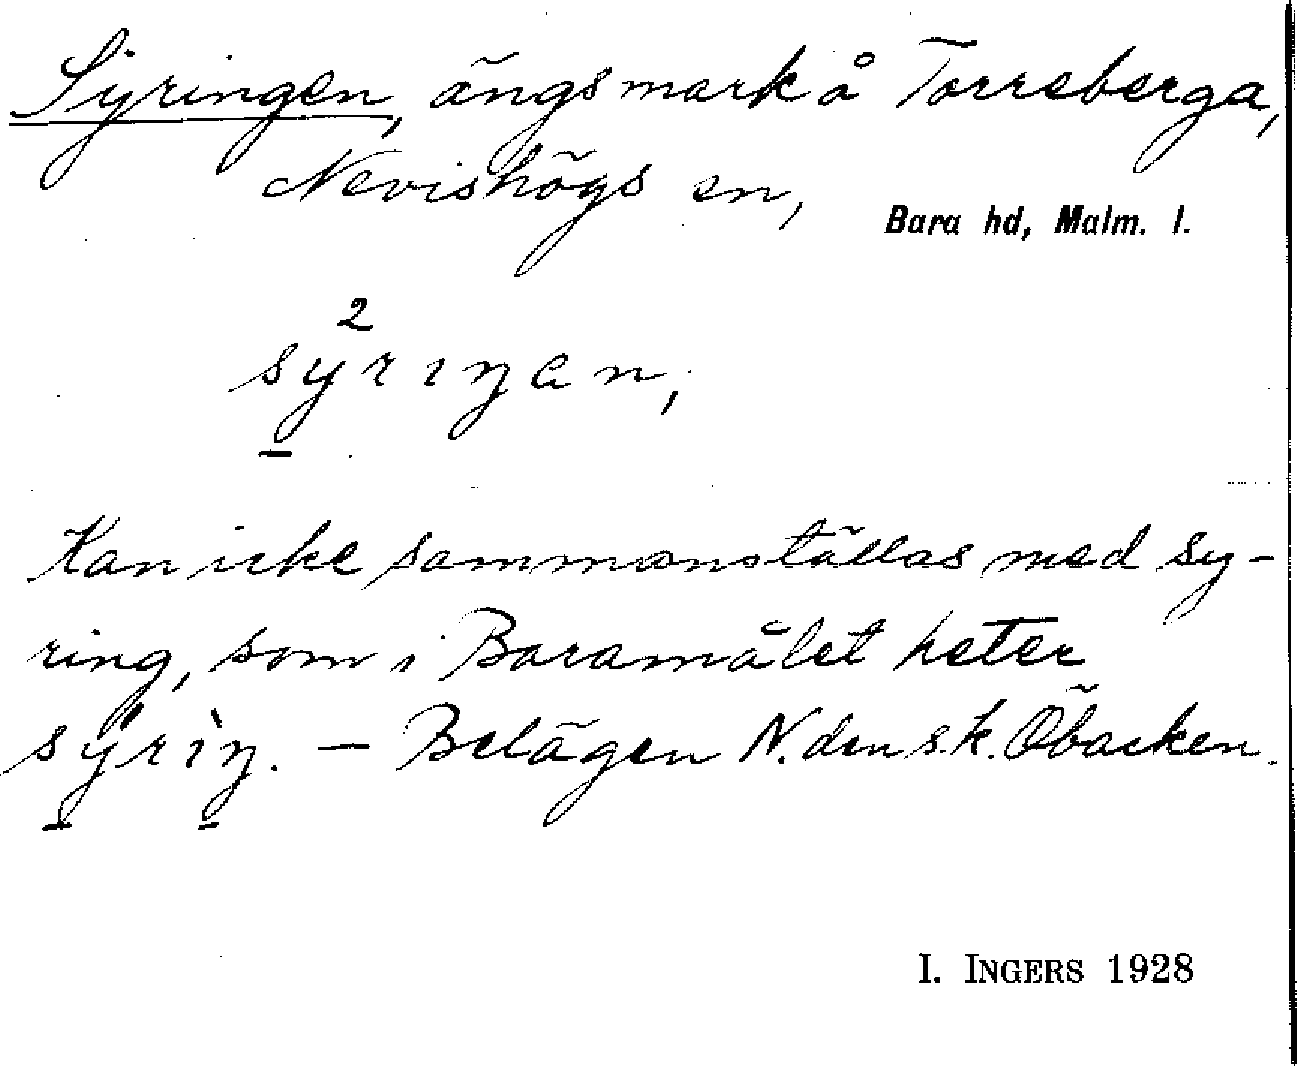 Syringen, ängsmark å Torreberga,
Nevishögs sn,
Bara hd, Malm. l.
2
syrıŋan,
Kan icke sammanställas med sy-
ring, som i Baramålet heter
sýrìŋ. — Belägen N. den s.k. Öbacken.
I. INGERS 1928